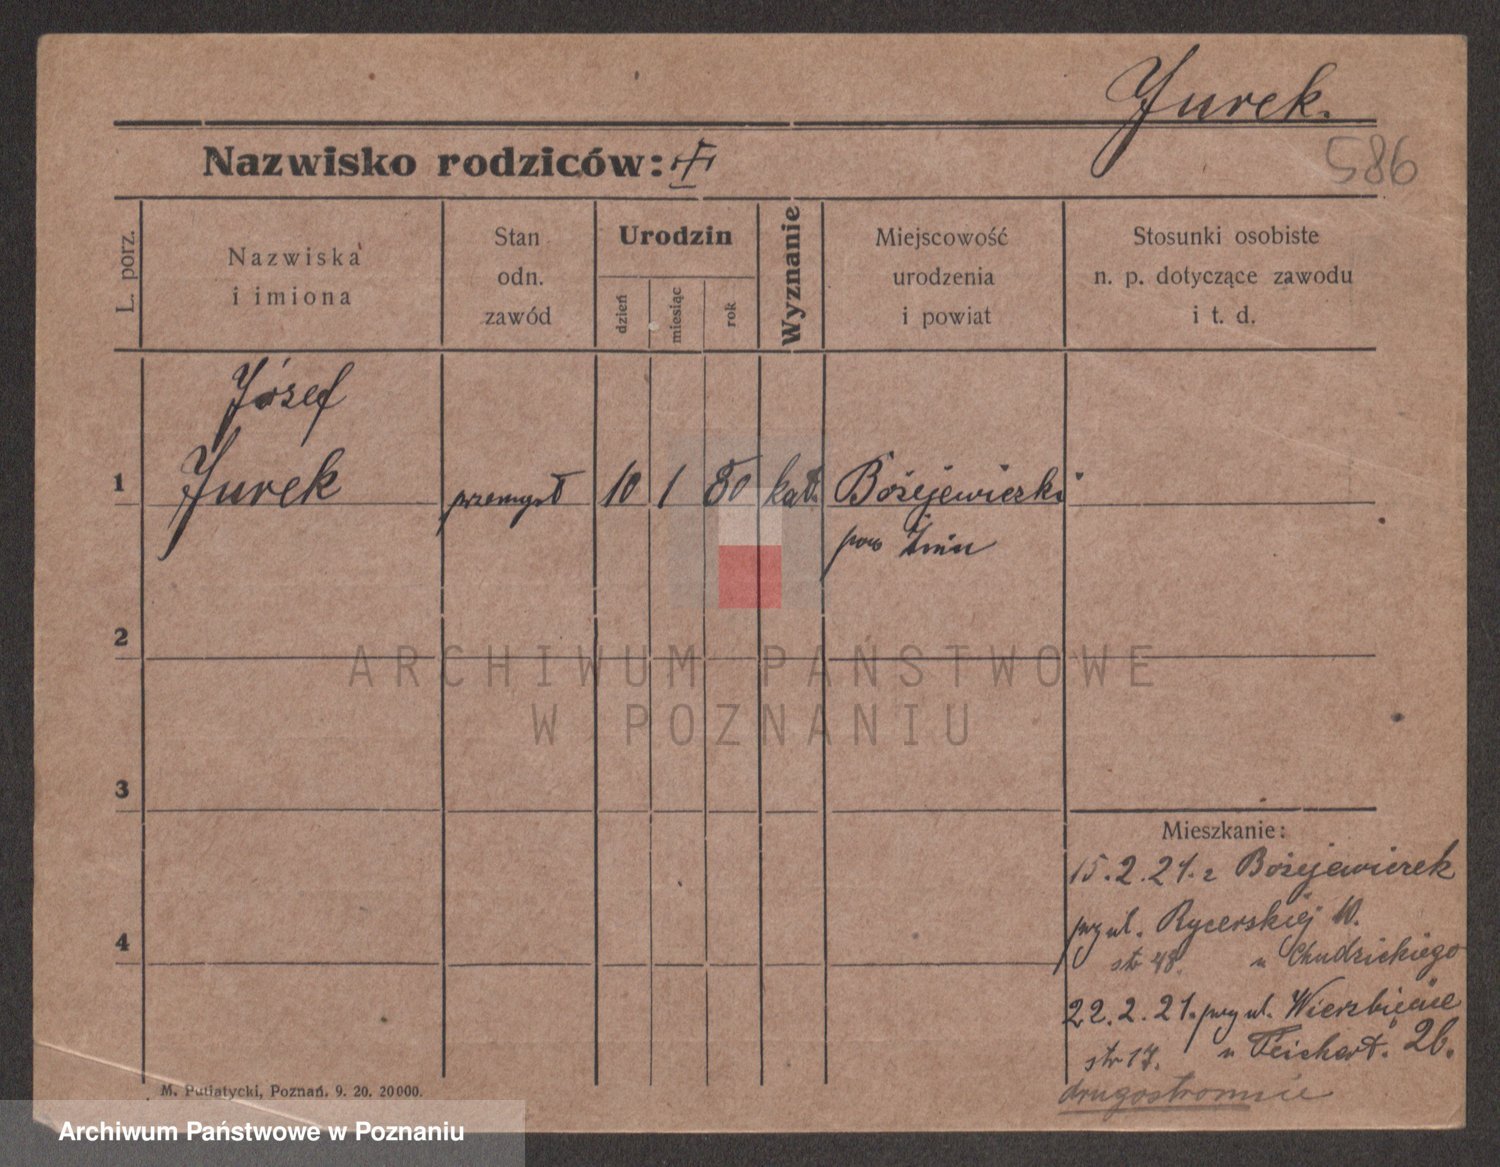 Jurek.
586
Nazwisko rodziców:
L. porz.
Nazwiska
i imiona
Stan
odn.
zawód
Urodzin
dzień
miesiąc
rok
Wyznanie
Miejscowość
urodzenia
i powiat
Stosunki osobiste
n. p. dotyczące zawodu
i t. d.
Józef
1 Jurek przemysł 10 1 80 kat. Bożejewiczki
pow Żnin
2
ARCHIWUM PAŃSTWOWE
W POZNANIU
3
Mieszkanie:
15.2.21. z Bożejewiczek
4 przy ul. Rycerskiej 10.
str 48. u Chudzickiego
22.2.21. przy ul. Wierzbięcice
str 17. u Teichert. 26.
drugostronnie
M. Putiatycki, Poznań. 9. 20. 20000.
Archiwum Państwowe w Poznaniu